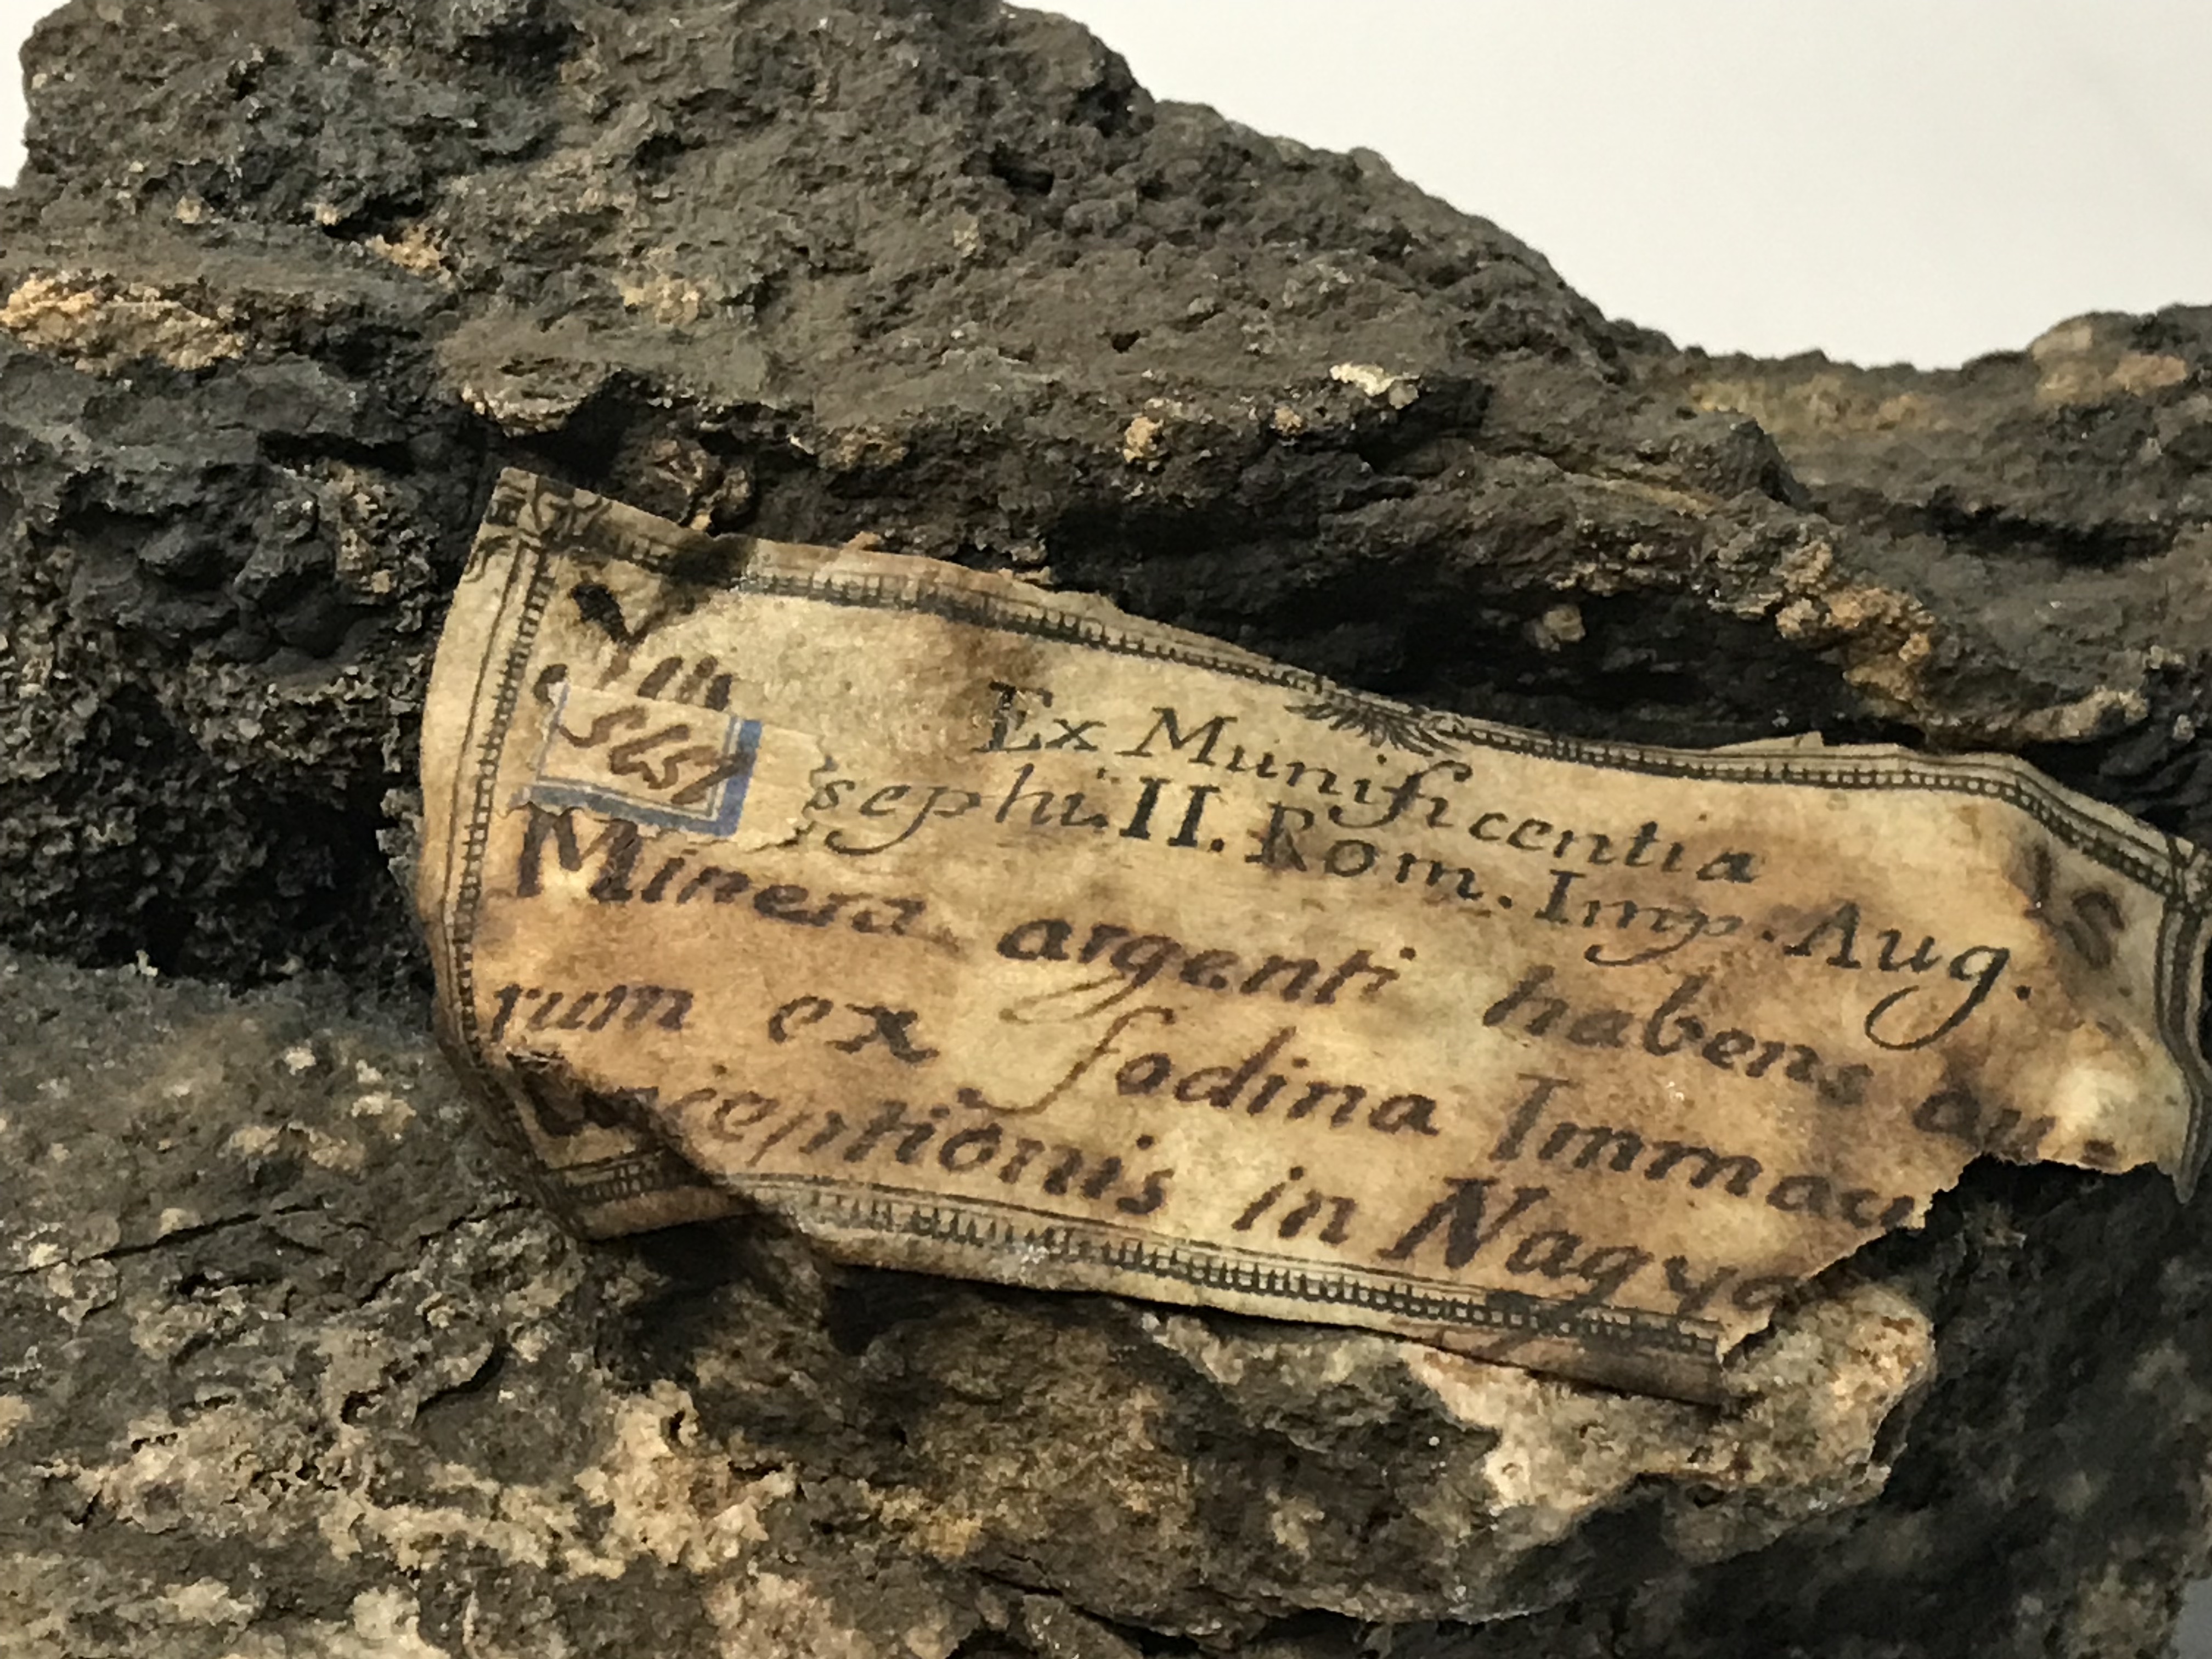 VIII
Ex Munificentia
sephi II. Rom. Imp. Aug.
Minera argenti habens au-
rum ex fodina Immacu
ceptionis in Nagya